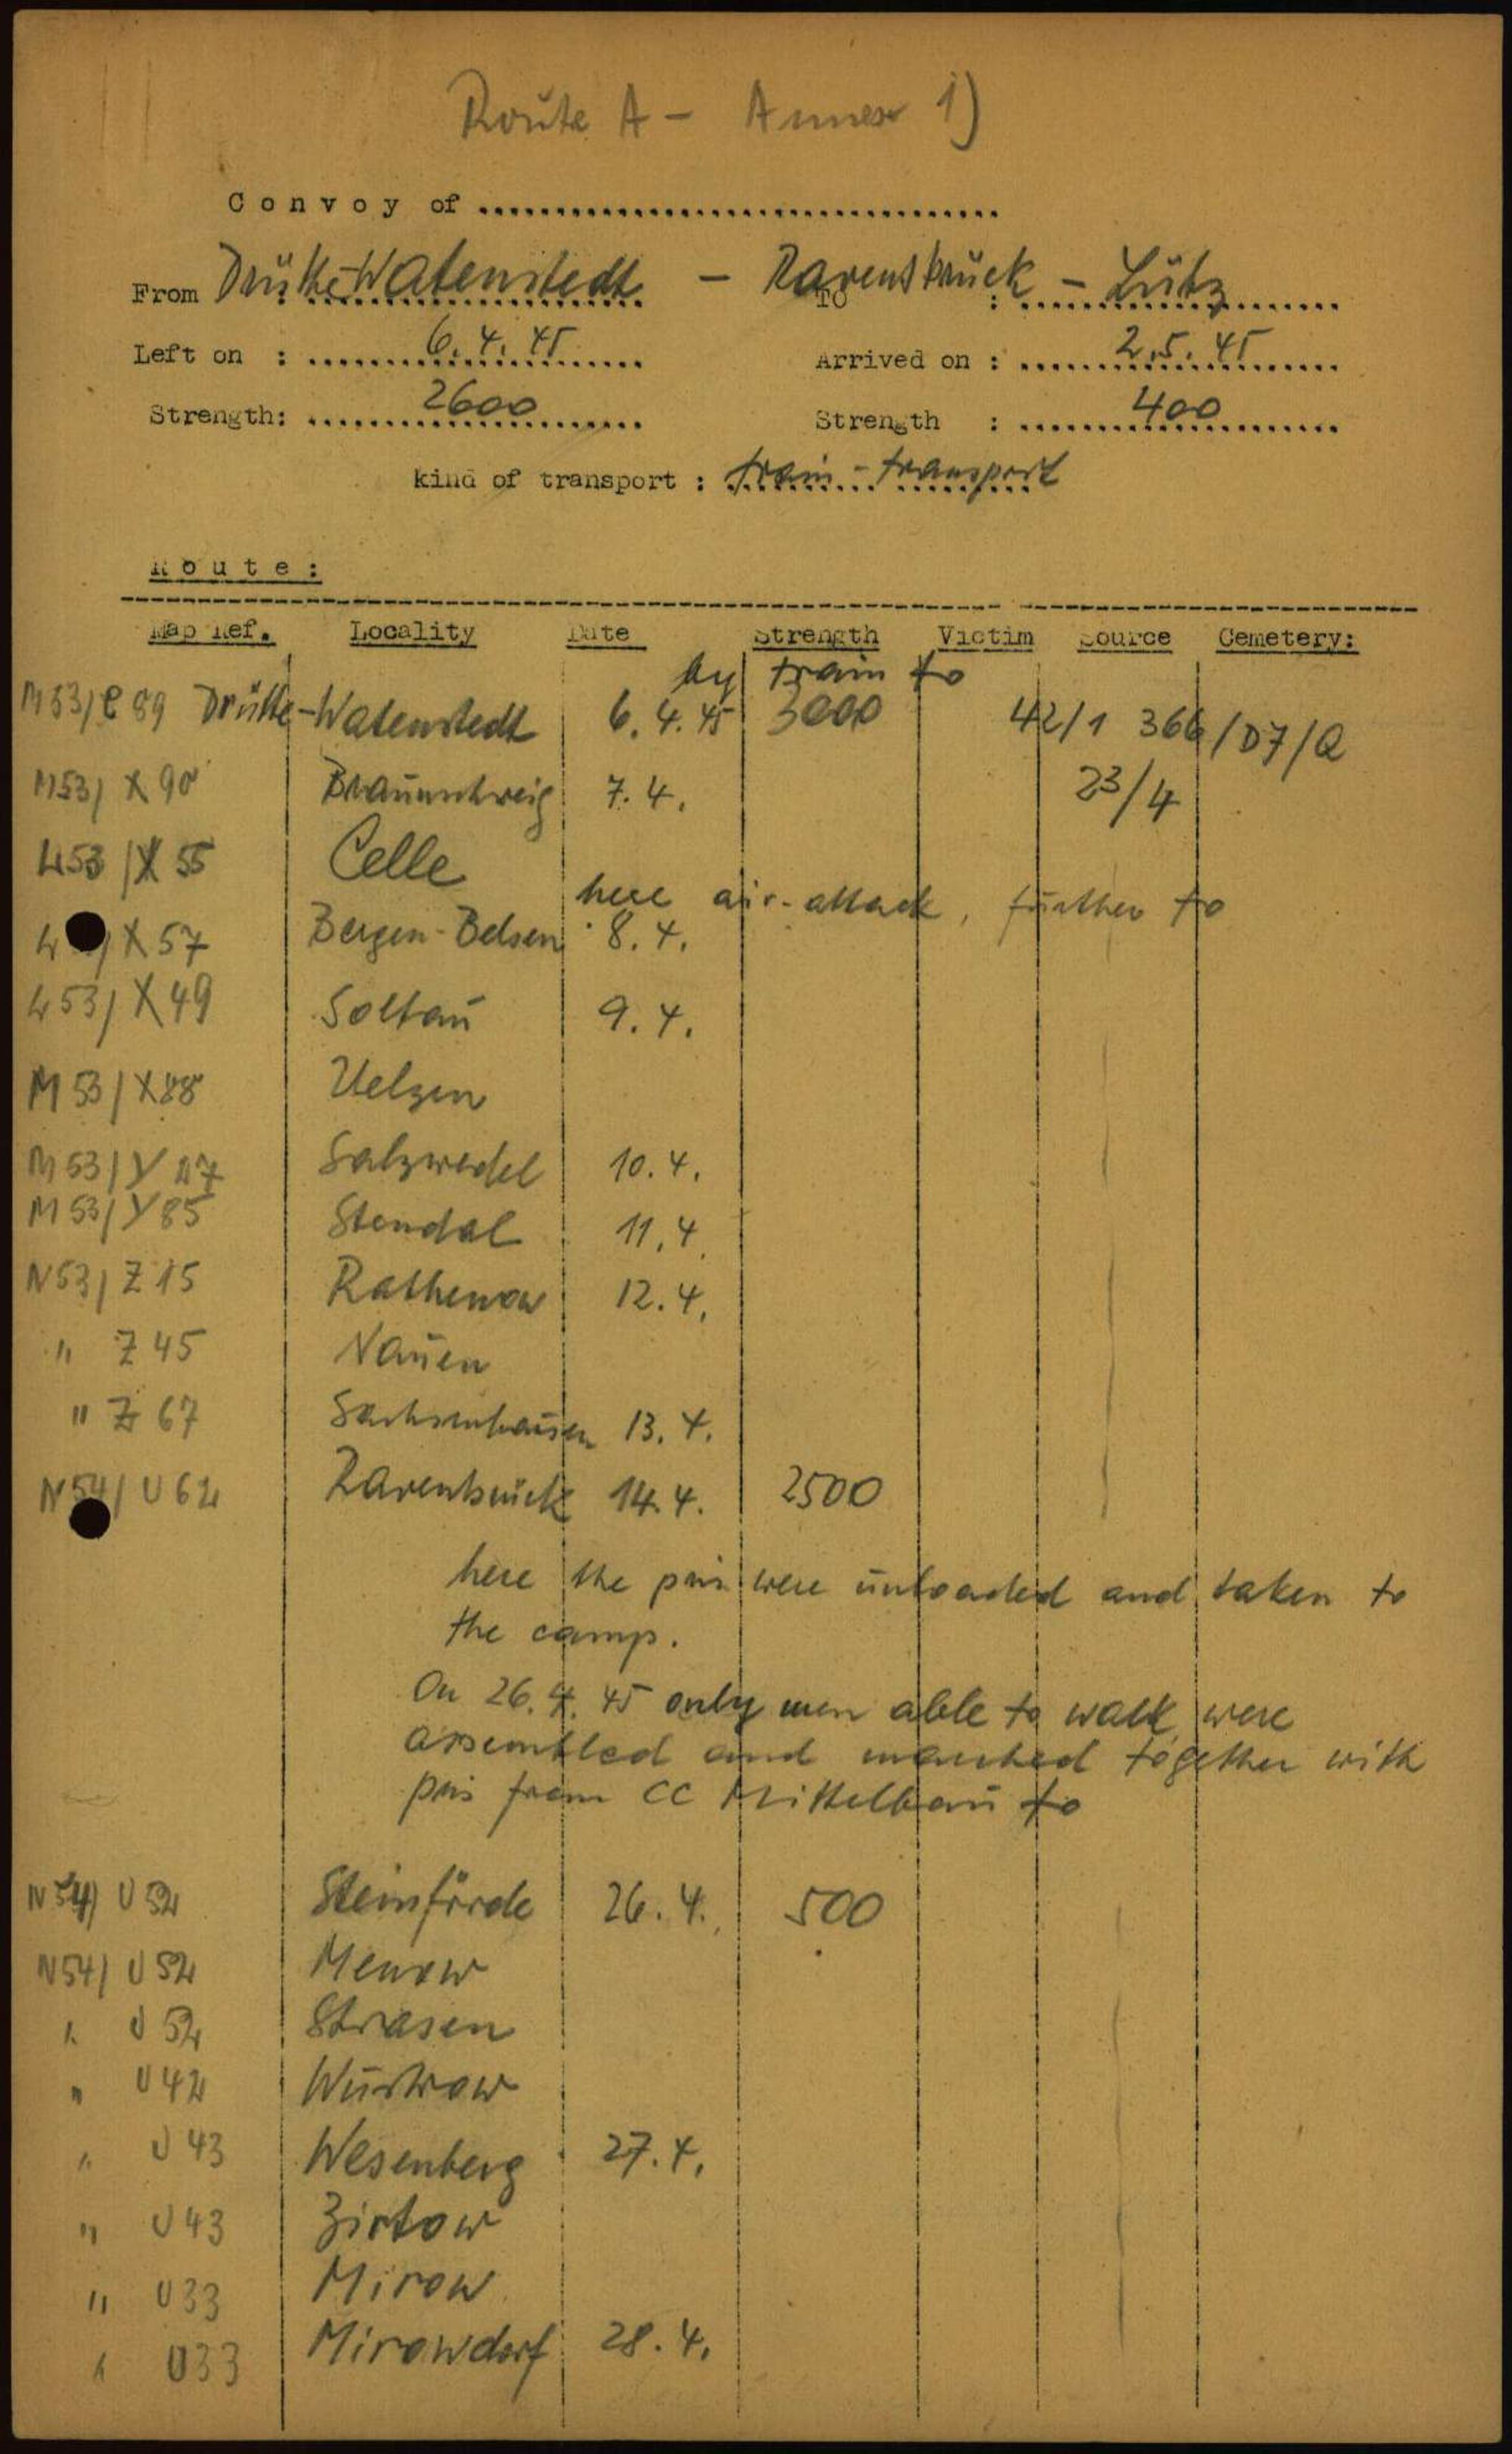 Route A - Annex 1)
Convoy of ..................................
From Drütte-Watenstedt - Ravensbrück - Lübz
TO :
Left on : 6.4.45 Arrived on : 2.5.45
Strength: 2600 Strength : 400
kind of transport : train-transport
Route:
Map Ref. Locality Date Strength Victim Source Cemetery:
by train to
M53/C 89 Drütte-Watenstedt 6.4.45 3000 42/1 366/D7/Q
M53/ X 90 Braunschweig 7.4. 23/4
L53/X 55 Celle
here air-attack, further to
X 57 Bergen-Belsen 8.4.
L53/ X 49 Soltau 9.4.
M 53/X88 Uelzen
M53/Y 17 Salzwedel 10.4.
M53/Y 85 Stendal 11.4.
N53/ Z 15 Rathenow 12.4.
" Z 45 Nauen
" Z 67 Sachsenhausen 13.4.
N54/ U 62 Ravensbrück 14.4. 2500
here the pris were unloaded and taken to
the camp.
On 26.4.45 only men able to walk were
assembled and marched together with
pris from CC Mittelbau to
N54/ U 52 Steinförde 26.4. 500
N54/ U 52 Menow
" U 52 Strasen
" U 42 Wustrow
" U 43 Wesenberg 27.4.
" U 43 Zirtow
" U 33 Mirow
" U33 Mirowdorf 28.4.